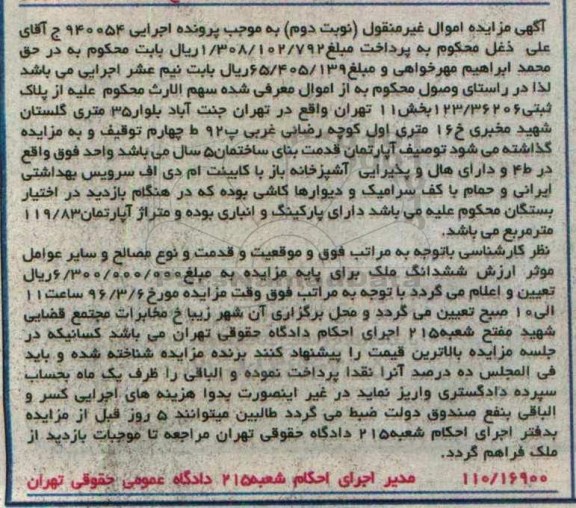 آگهی مزایده اموال غیرمنقول (نوبت دوم) به موجب پرونده اجرایی ۹۴۰۰۵۴ ج آقای
علی ذغل محکوم به پرداخت مبلغ۱/۳۰۸/۱۰۲/۷۹۲ریال بابت محکوم به در حق
محمد ابراهیم مهرخواهی و مبلغ۶۵/۴۰۵/۱۳۹ریال بابت نیم عشر اجرایی می باشد
لذا در راستای وصول محکوم به از اموال معرفی شده سهم الارث محکوم علیه از پلاک
ثبتی۱۲۳/۳۶۲۰۶بخش۱۱ تهران واقع در تهران جنت آباد بلوار۳۵ متری گلستان
شهید مخبری خ۱۶ متری اول کوچه رضائی غربی پ۹۲ ط چهارم توقیف و به مزایده
گذاشته می شود توصیف آپارتمان قدمت بنای ساختمان۵ سال می باشد واحد فوق واقع
در ط۴ و دارای هال و پذیرایی آشپزخانه باز با کابینت ام دی اف سرویس بهداشتی
ایرانی و حمام با کف سرامیک و دیوارها کاشی بوده که در هنگام بازدید در اختیار
بستگان محکوم علیه می باشد دارای پارکینگ و انباری بوده و متراژ آپارتمان۱۱۹/۸۳
مترمربع می باشد.
نظر کارشناسی باتوجه به مراتب فوق و موقعیت و قدمت و نوع مصالح و سایر عوامل
موثر ارزش ششدانگ ملک برای پایه مزایده به مبلغ۶/۳۰۰/۰۰۰/۰۰۰ریال
تعیین و اعلام می گردد با توجه به مراتب فوق وقت مزایده مورخ۹۶/۳/۶ ساعت۱۱
الی۱۰ صبح تعیین می گردد و محل برگزاری آن شهر زیبا خ مخابرات مجتمع قضایی
شهید مفتح شعبه۲۱۵ اجرای احکام دادگاه حقوقی تهران می باشد کسانیکه در
جلسه مزایده بالاترین قیمت را پیشنهاد کنند برنده مزایده شناخته شده و باید
فی المجلس ده درصد آنرا نقدا پرداخت نموده و الباقی را ظرف یک ماه بحساب
سپرده دادگستری واریز نماید در غیر اینصورت بدوا هزینه های اجرایی کسر و
الباقی بنفع صندوق دولت ضبط می گردد طالبین میتوانند ۵ روز قبل از مزایده
بدفتر اجرای احکام شعبه۲۱۵ دادگاه حقوقی تهران مراجعه تا موجبات بازدید از
ملک فراهم گردد.
۱۱۰/۱۶۹۰۰ مدیر اجرای احکام شعبه۲۱۵ دادگاه عمومی حقوقی تهران